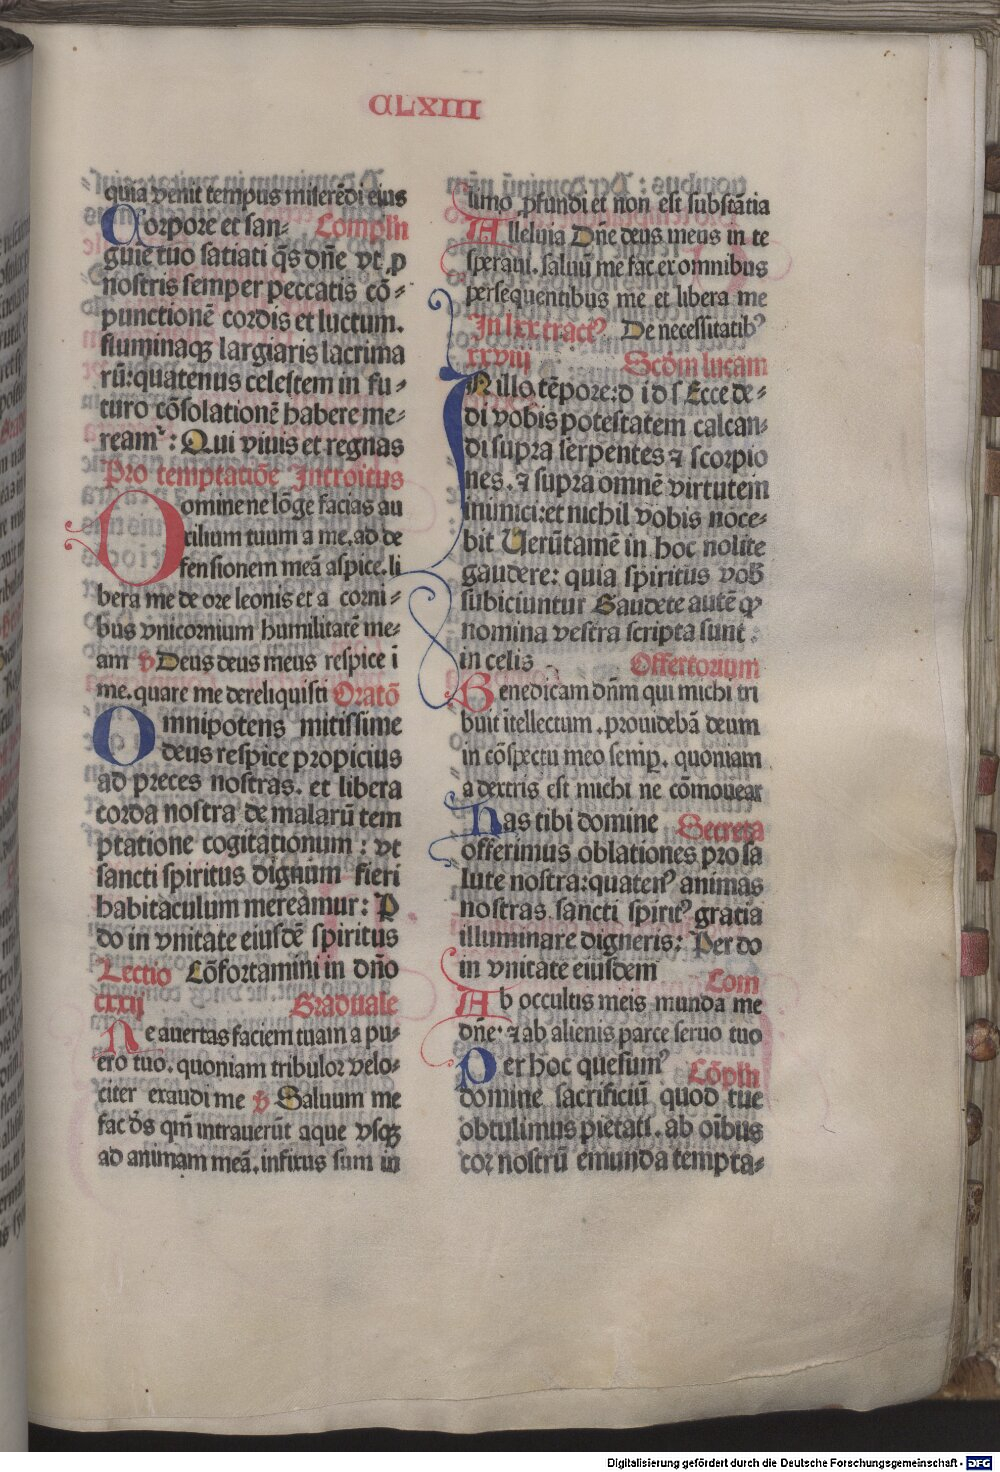 CLXIII
quia venit tempus miserēdi eius
Corpore et san- Complñ
guīe tuo satiati q̄s dn̄e vt p̱
nostris semper peccatis cō-
punctionē cordis et luctum.
fluminaqꝫ largiaris lacrima
rū: quatenus celestem in fu-
turo cōsolationē habere me-
ream᷑: Qui viuis et regnas
Pro temptatiōe Introitus
Domine ne lōge facias au
xilium tuum a me. ad de
fensionem meā aspice. li
bera me de ore leonis et a corni-
bus vnicornium humilitatē me-
am ꝟ Deus deus meus respice ī
me. quare me dereliquisti Oratō
Omnipotens mitissime
deus respice propicius
ad preces nostras. et libera
corda nostra de malarū tem
ptatione cogitationum: vt
sancti spiritus dignum fieri
habitaculum mereāmur: P
do in vnitate eiusdē spiritus
Lectio Cōfortamini in dn̄o
cxxij Graduale
Ne auertas faciem tuam a pu-
ero tuo. quoniam tribulor velo-
citer exaudi me ꝟ Saluum me
fac ds̄ qm̄ intrauerūt aque vsqꝫ
ad animam meā. infixus sum in
limo ꝓfundi et non est substātia
Alleluia Dn̄e deus meus in te
speraui. saluū me fac. ex omnibus
persequentibus me et libera me
In lxx tractꝰ De necessitatibꝰ
xxviij Scd̄m lucam
In illo tēpore: d i d s Ecce de-
di vobis potestatem calcan-
di supra serpentes ⁊ scorpio
nes. ⁊ supra omnē virtutem
inimici: et nichil vobis noce-
bit Uerūtamē in hoc nolite
gaudere: quia spiritus vob̄
subiciuntur Gaudete autē qꝫ
nomina vestra scripta sunt
in celis Offertorium
Benedicam dn̄m qui michi tri
buit ītellectum. prouidebā deum
in cōspectu meo semp̱. quoniam
a dextris est michi ne cōmouear
Has tibi domine Secreta
offerimus oblationes pro sa
lute nostra: quatenꝰ animas
nostras sancti spiritꝰ gratia
illuminare digneris: Per do
in vnitate eiusdem Com
Ab occultis meis munda me
dn̄e. ⁊ ab alienis parce seruo tuo
Per hoc quesumꝰ Cōpln̄
domine sacrificiū quod tue
obtulimus pietati. ab oībus
cor nostrū emunda tempta-
Digitalisierung gefördert durch die Deutsche Forschungsgemeinschaft - DFG